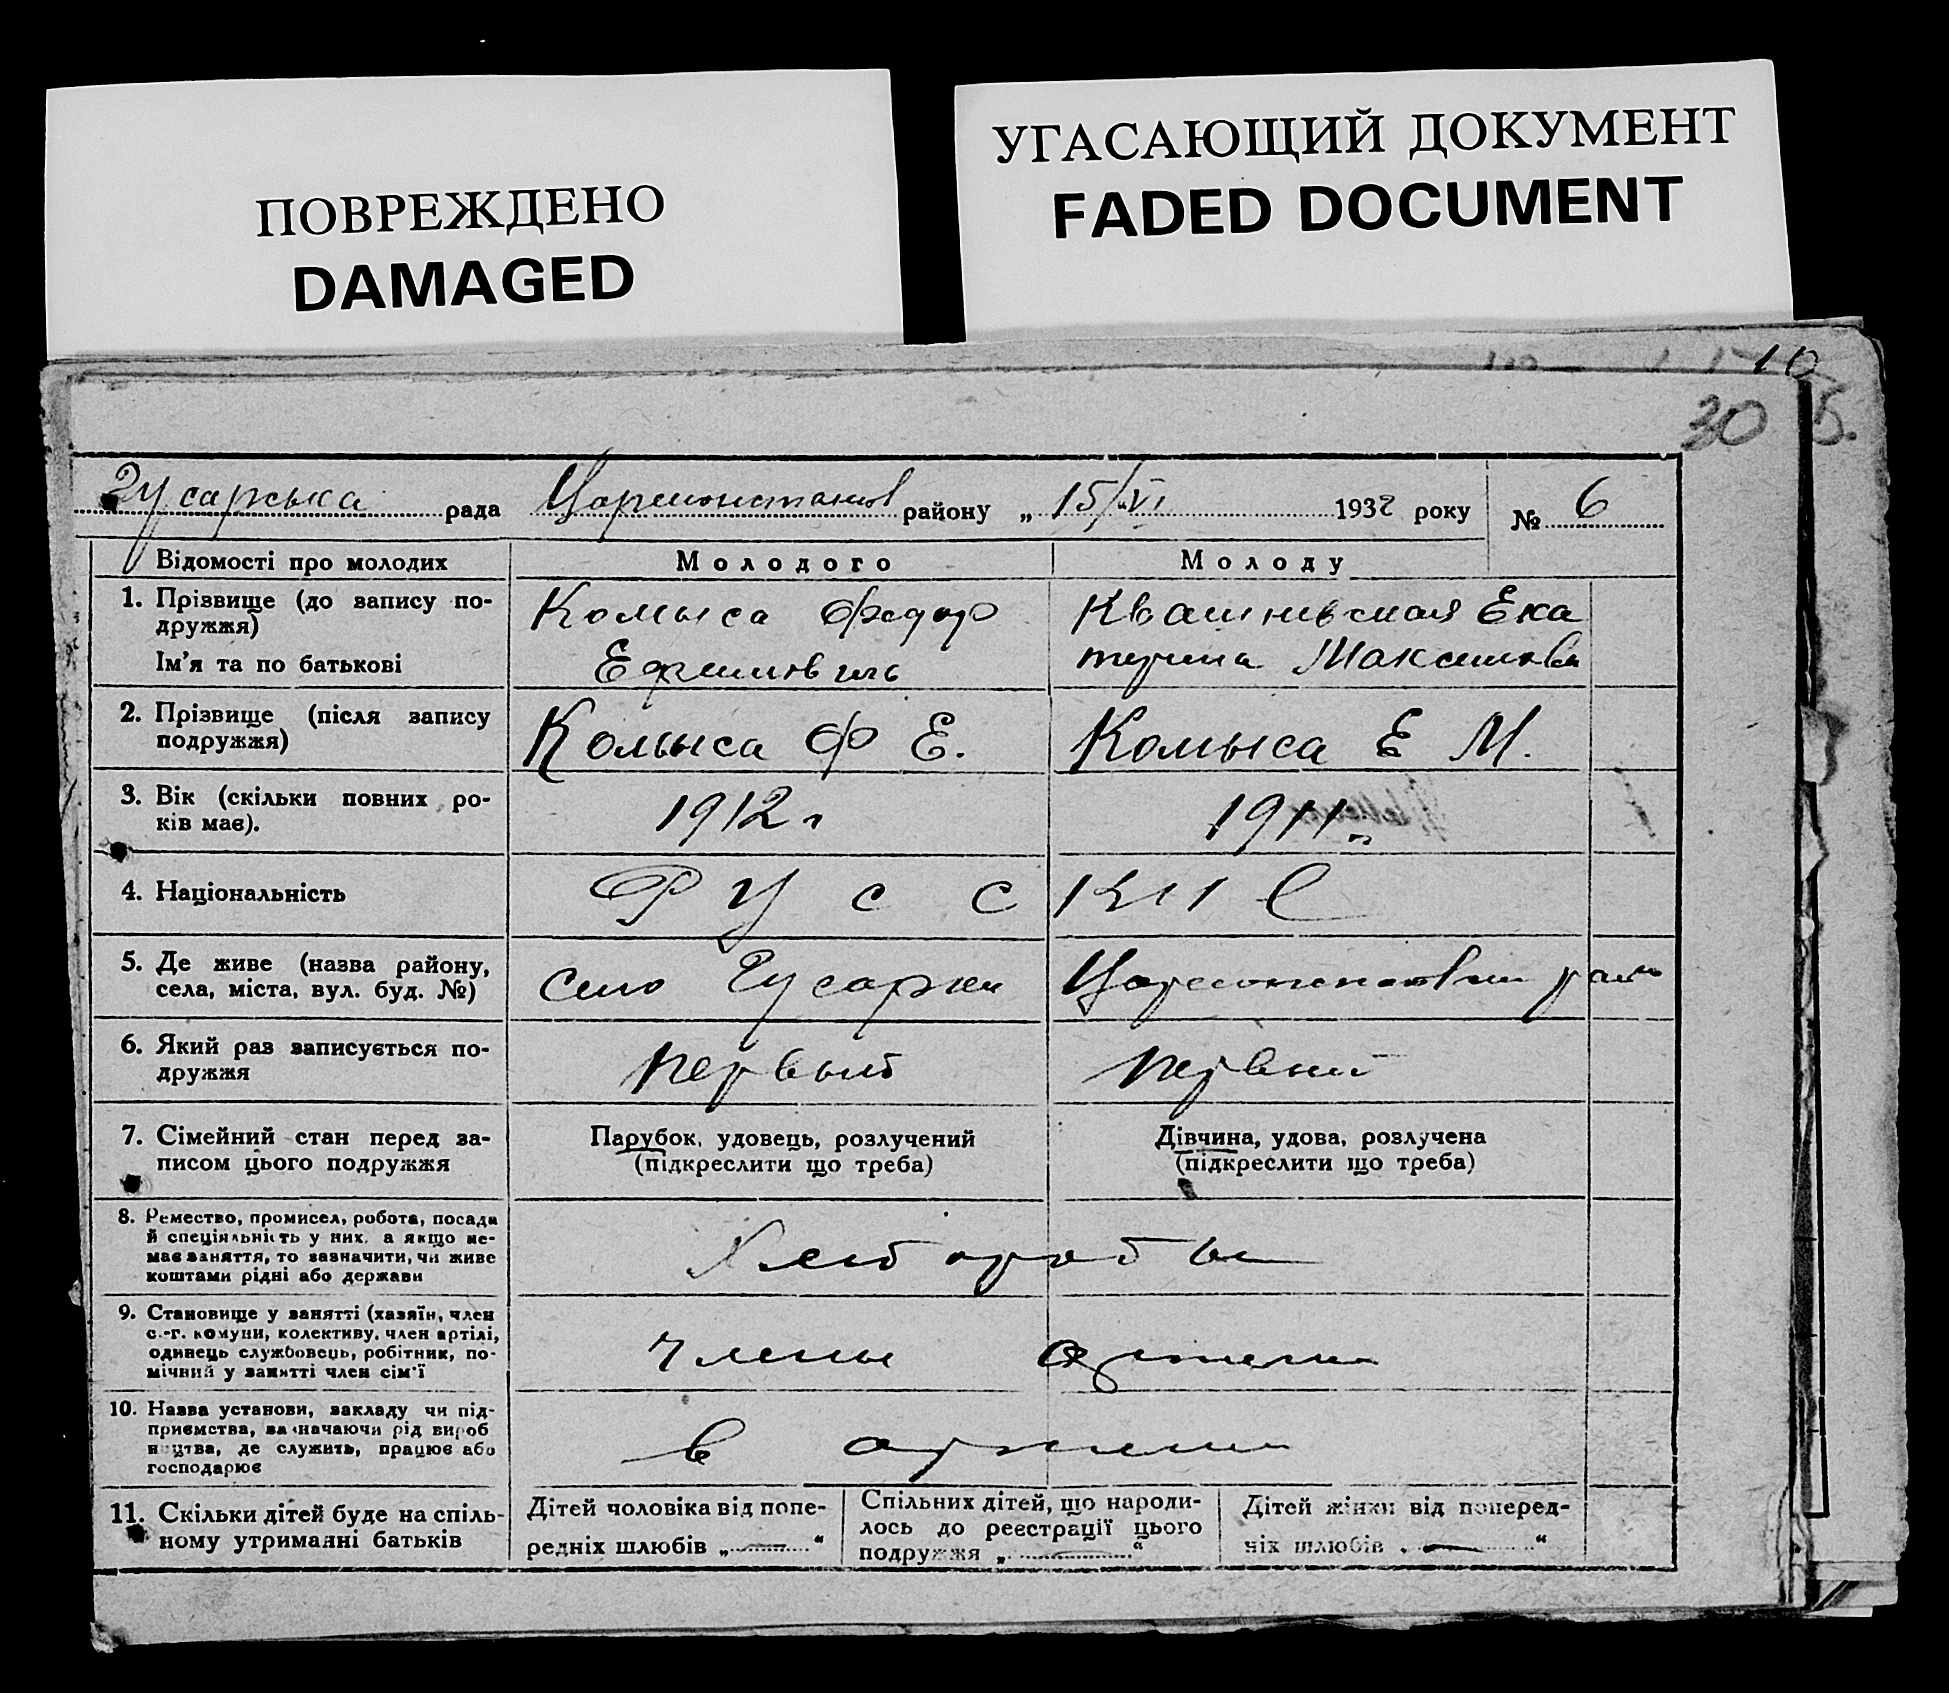 ПОВРЕЖДЕНО
DAMAGED
УГАСАЮЩИЙ ДОКУМЕНТ
FADED DOCUMENT
110
30 Б.
Гусарська рада Царшонстанов району „ 15/VI 1932 року № 6
Відомості про молодих Молодого Молоду
1. Прізвище (до запису по-
дружжя)
Ім'я та по батькові
Комыса Федор
Ефимович
Екa
терина Максимовн
2. Прізвище (після запису
подружжя)
Комыса Ф Е. Комыса Е М.
3. Вік (скільки повних ро-
ків має).
1912 г 1911 г.
4. Національність
Р У С С К И Е
5. Де живе (назва району,
села, міста, вул. буд. №)
село Гусарки
6. Який раз записується по-
дружжя
первый первый
7. Сімейний стан перед за-
писом цього подружжя
Парубок, удовець, розлучений
(підкреслити що треба)
Дівчина, удова, розлучена
(підкреслити що треба)
8. Ремество, промисел, робота, посада
й спеціяльність у них, а якщо не-
має заняття, то зазначити, чи живе
коштами рідні або держави
Хлеборобы
9. Становище у занятті (хазяїн, член
с.-г. комуни, колективу, член артілі,
одинець службовець, робітник, по-
мічний у занятті член сім'ї
члены артели
10. Назва установи, закладу чи під-
приємства, зазначаючи рід вироб
ництва, де служить, працює або
господарює
в артели
11. Скільки дітей буде на спіль-
ному утриманні батьків
Дітей чоловіка від попе-
редніх шлюбів „ — “
Спільних дітей, що народи-
лось до реєстрації цього
подружжя „ — “
Дітей жінки від поперед-
ніх шлюбів „ — “